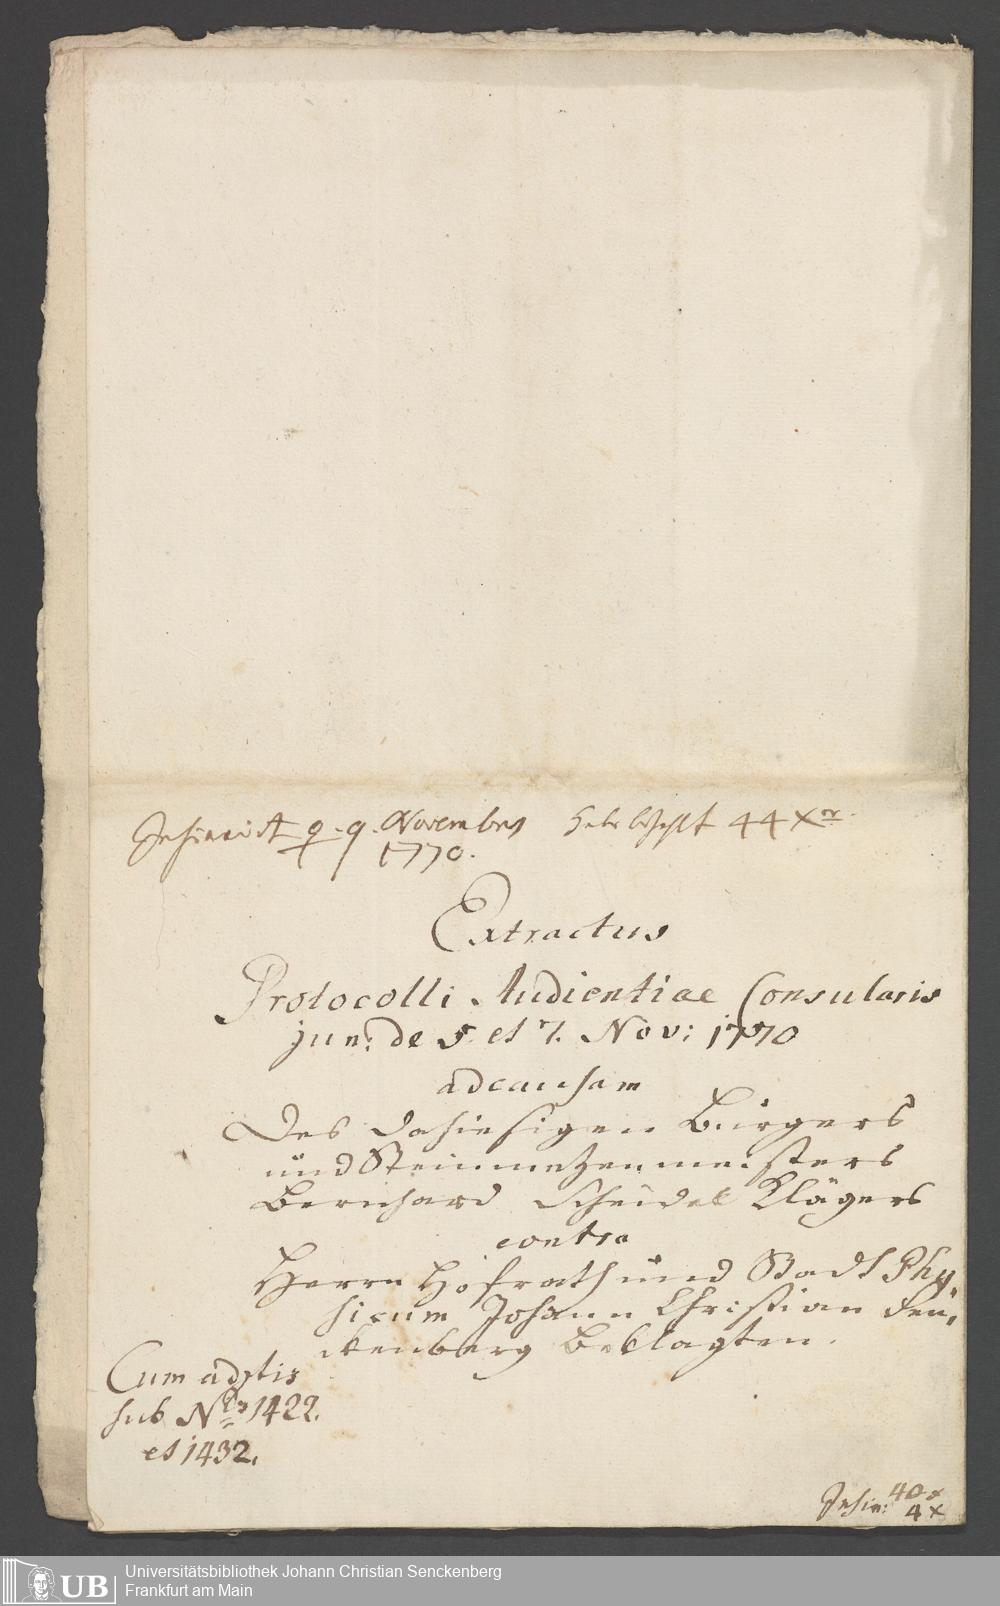 Insinuirt ♀ 9. November habe bezahlt 44 Xer.
1770.
Extractus
Protocolli Audientiae Consularis
jun: de 5. et 7. Nov: 1770
ad causam
Des dahiesigen Bürgers
und Steinmetzenmeisters
Bernhard Scheidel Klägers
contra
Herrn Hofrath und Stadt Phy-
sicum Johann Christian Sen-
ckenberg Beklagten.
Cum adjtis
sub Nris 1422.
et 1432.
40 x
Insin: 4 x
UB Universitätsbibliothek Johann Christian Senckenberg
Frankfurt am Main